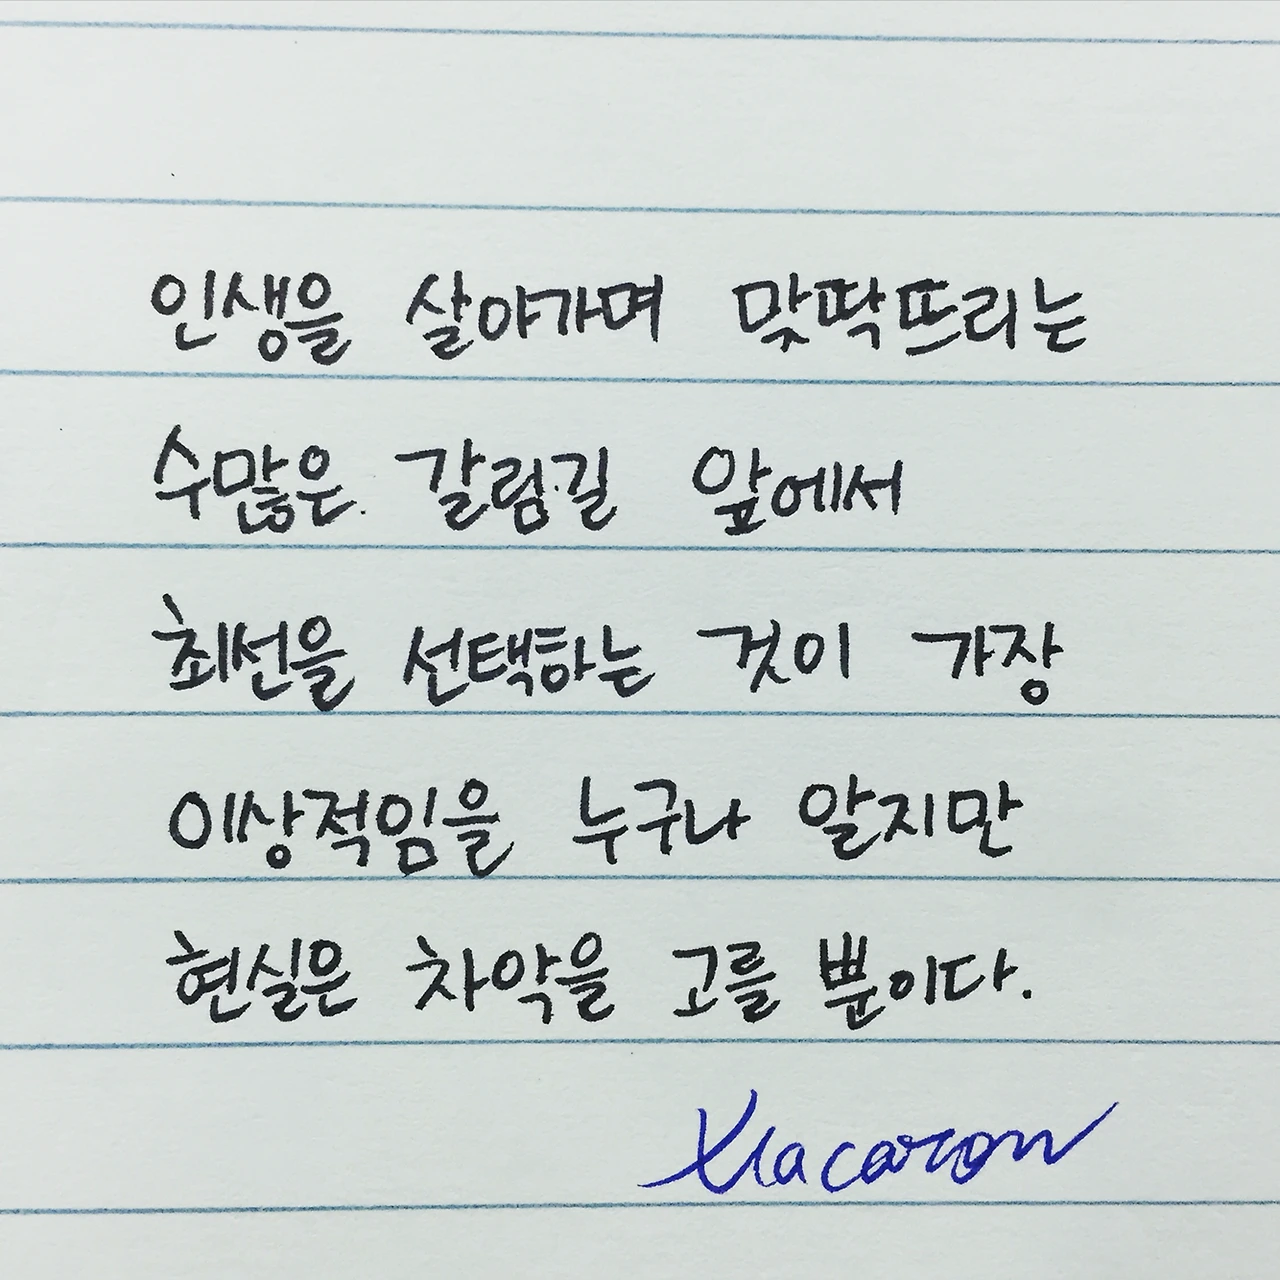 인생을 살아가며 맞딱뜨리는
수많은 갈림길 앞에서
최선을 선택하는 것이 가장
이상적임을 누구나 알지만
현실은 차악을 고를 뿐이다.